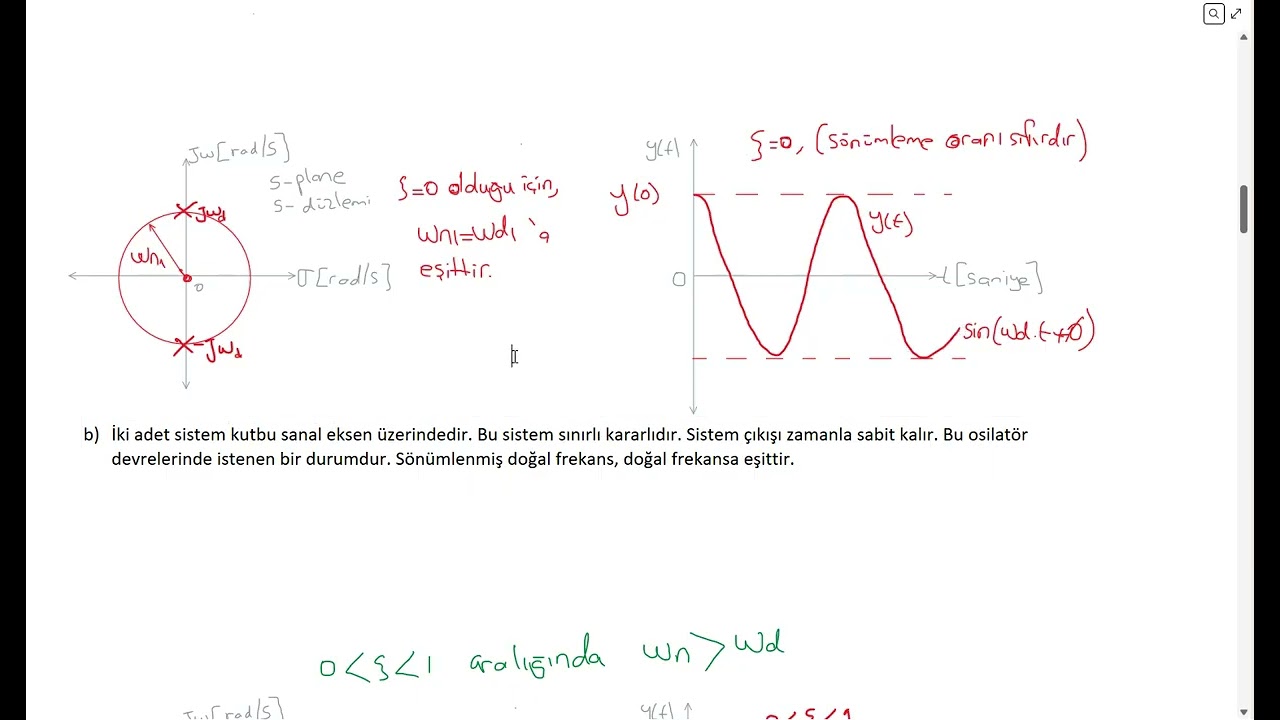 Jω[rad/s]
s-plane
s-düzlemi
Jωd
ωn1
0
σ[rad/s]
-Jωd
ξ=0 olduğu için,
ωn1=ωd1 'e
eşittir.
y(t)
ξ=0, (sönümleme oranı sıfırdır)
y(0)
y(t)
0
t[saniye]
sin(ωd.t+Ø)
b) İki adet sistem kutbu sanal eksen üzerindedir. Bu sistem sınırlı kararlıdır. Sistem çıkışı zamanla sabit kalır. Bu osilatör
devrelerinde istenen bir durumdur. Sönümlenmiş doğal frekans, doğal frekansa eşittir.
0<ξ<1 aralığında ωn>ωd
Jω[rad/s]
y(t)
0<ξ<1